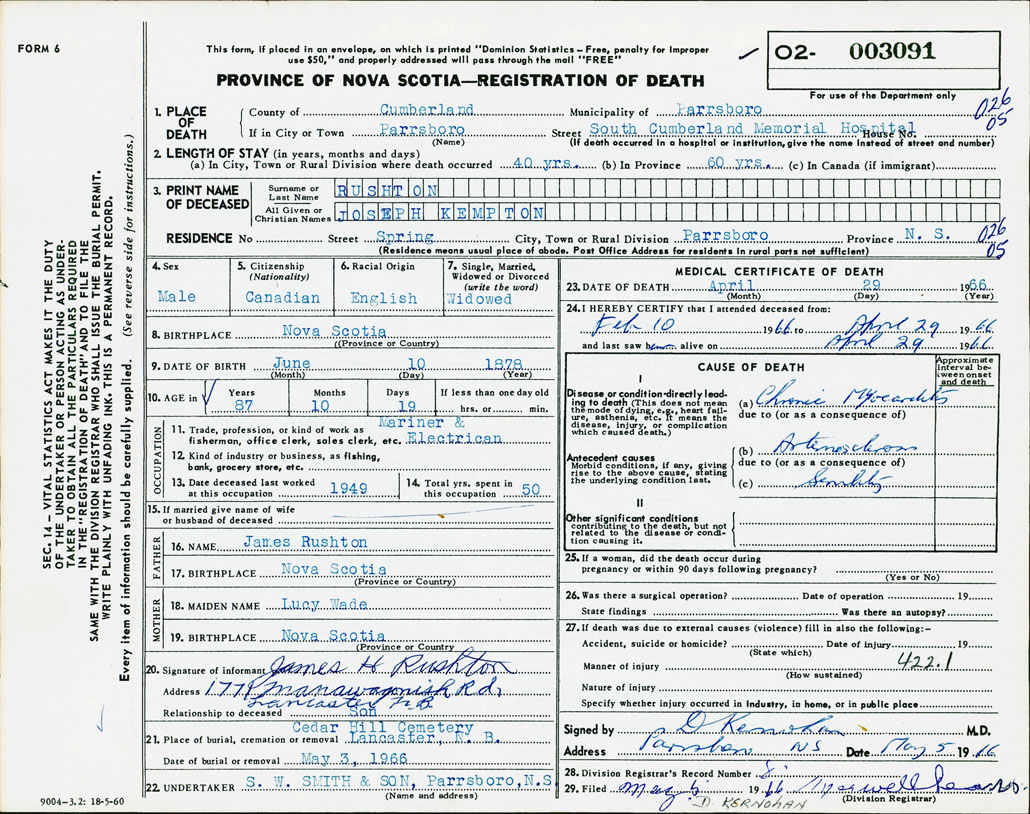 FORM 6
This form, if placed in an envelope, on which is printed "Dominion Statistics – Free, penalty for improper
use $50," and properly addressed will pass through the mail "FREE"
✓ O2- 003091
For use of the Department only
PROVINCE OF NOVA SCOTIA—REGISTRATION OF DEATH
SEC. 14 – VITAL STATISTICS ACT MAKES IT THE DUTY
OF THE UNDERTAKER OR PERSON ACTING AS UNDER-
TAKER TO OBTAIN ALL THE PARTICULARS REQUIRED
IN THE "REGISTRATION OF DEATH" AND TO FILE THE
SAME WITH THE DIVISION REGISTRAR WHO SHALL ISSUE THE BURIAL PERMIT.
WRITE PLAINLY WITH UNFADING INK. THIS IS A PERMANENT RECORD.
Every item of information should be carefully supplied. (See reverse side for instructions.)
1. PLACE OF DEATH
County of Cumberland Municipality of Parrsboro 026
If in City or Town Parrsboro Street South Cumberland Memorial Hospital House No. 05
(Name) (If death occurred in a hospital or institution, give the name instead of street and number)
2. LENGTH OF STAY (in years, months and days)
(a) In City, Town or Rural Division where death occurred 40 yrs. (b) In Province 60 yrs. (c) In Canada (if immigrant)
3. PRINT NAME OF DECEASED
Surname or Last Name RUSHTON
All Given or Christian Names JOSEPH KEMPTON
RESIDENCE No Street Spring City, Town or Rural Division Parrsboro Province N. S. 026
(Residence means usual place of abode. Post Office Address for residents in rural parts not sufficient) 05
4. Sex
Male
5. Citizenship
(Nationality)
Canadian
6. Racial Origin
English
7. Single, Married,
Widowed or Divorced
(write the word)
Widowed
8. BIRTHPLACE Nova Scotia
((Province or Country)
9. DATE OF BIRTH June 10 1878
(Month) (Day) (Year)
10. AGE in ✓ Years Months Days If less than one day old
87 10 19 hrs. or min.
OCCUPATION
11. Trade, profession, or kind of work as Mariner &
fisherman, office clerk, sales clerk, etc. Electrican
12. Kind of industry or business, as fishing,
bank, grocery store, etc.
13. Date deceased last worked
at this occupation 1949
14. Total yrs. spent in
this occupation 50
15. If married give name of wife
or husband of deceased
FATHER
16. NAME James Rushton
17. BIRTHPLACE Nova Scotia
(Province or Country)
MOTHER
18. MAIDEN NAME Lucy Wade
19. BIRTHPLACE Nova Scotia
(Province or Country)
20. Signature of informant James H Rushton
Address 1779 Manawagonish Rd,
Lancaster N.B.
Relationship to deceased Son
Cedar Hill Cemetery
21. Place of burial, cremation or removal Lancaster, N. B.
Date of burial or removal May 3, 1966
22. UNDERTAKER S. W. SMITH & SON, Parrsboro, N.S
(Name and address)
9004–3.2: 18-5-60
MEDICAL CERTIFICATE OF DEATH
23. DATE OF DEATH April 29 1966
(Month) (Day) (Year)
24. I HEREBY CERTIFY that I attended deceased from:
Feb 10 1966 to April 29 1966
and last saw h alive on April 29 1966
CAUSE OF DEATH
Approximate
interval be-
tween onset
and death
I
Disease or condition directly lead-
ing to death (This does not mean
the mode of dying, e.g., heart fail-
ure, asthenia, etc. It means the
disease, injury, or complication
which caused death.)
(a) Chronic Myocarditis
due to (or as a consequence of)
Antecedent causes
Morbid conditions, if any, giving
rise to the above cause, stating
the underlying condition last.
(b) Arteriosclerosis
due to (or as a consequence of)
(c) Senility
II
Other significant conditions
contributing to the death, but not
related to the disease or condi-
tion causing it.
25. If a woman, did the death occur during
pregnancy or within 90 days following pregnancy?
(Yes or No)
26. Was there a surgical operation? Date of operation 19
State findings Was there an autopsy?
27. If death was due to external causes (violence) fill in also the following:–
Accident, suicide or homicide? Date of injury 19
(State which) 422.1
Manner of injury
(How sustained)
Nature of injury
Specify whether injury occurred in industry, in home, or in public place
Signed by D Kernohan M.D.
Address Parrsboro NS Date May 5 1966
28. Division Registrar's Record Number 8
29. Filed May 5 1966
(Division Registrar)
D. KERNOHAN